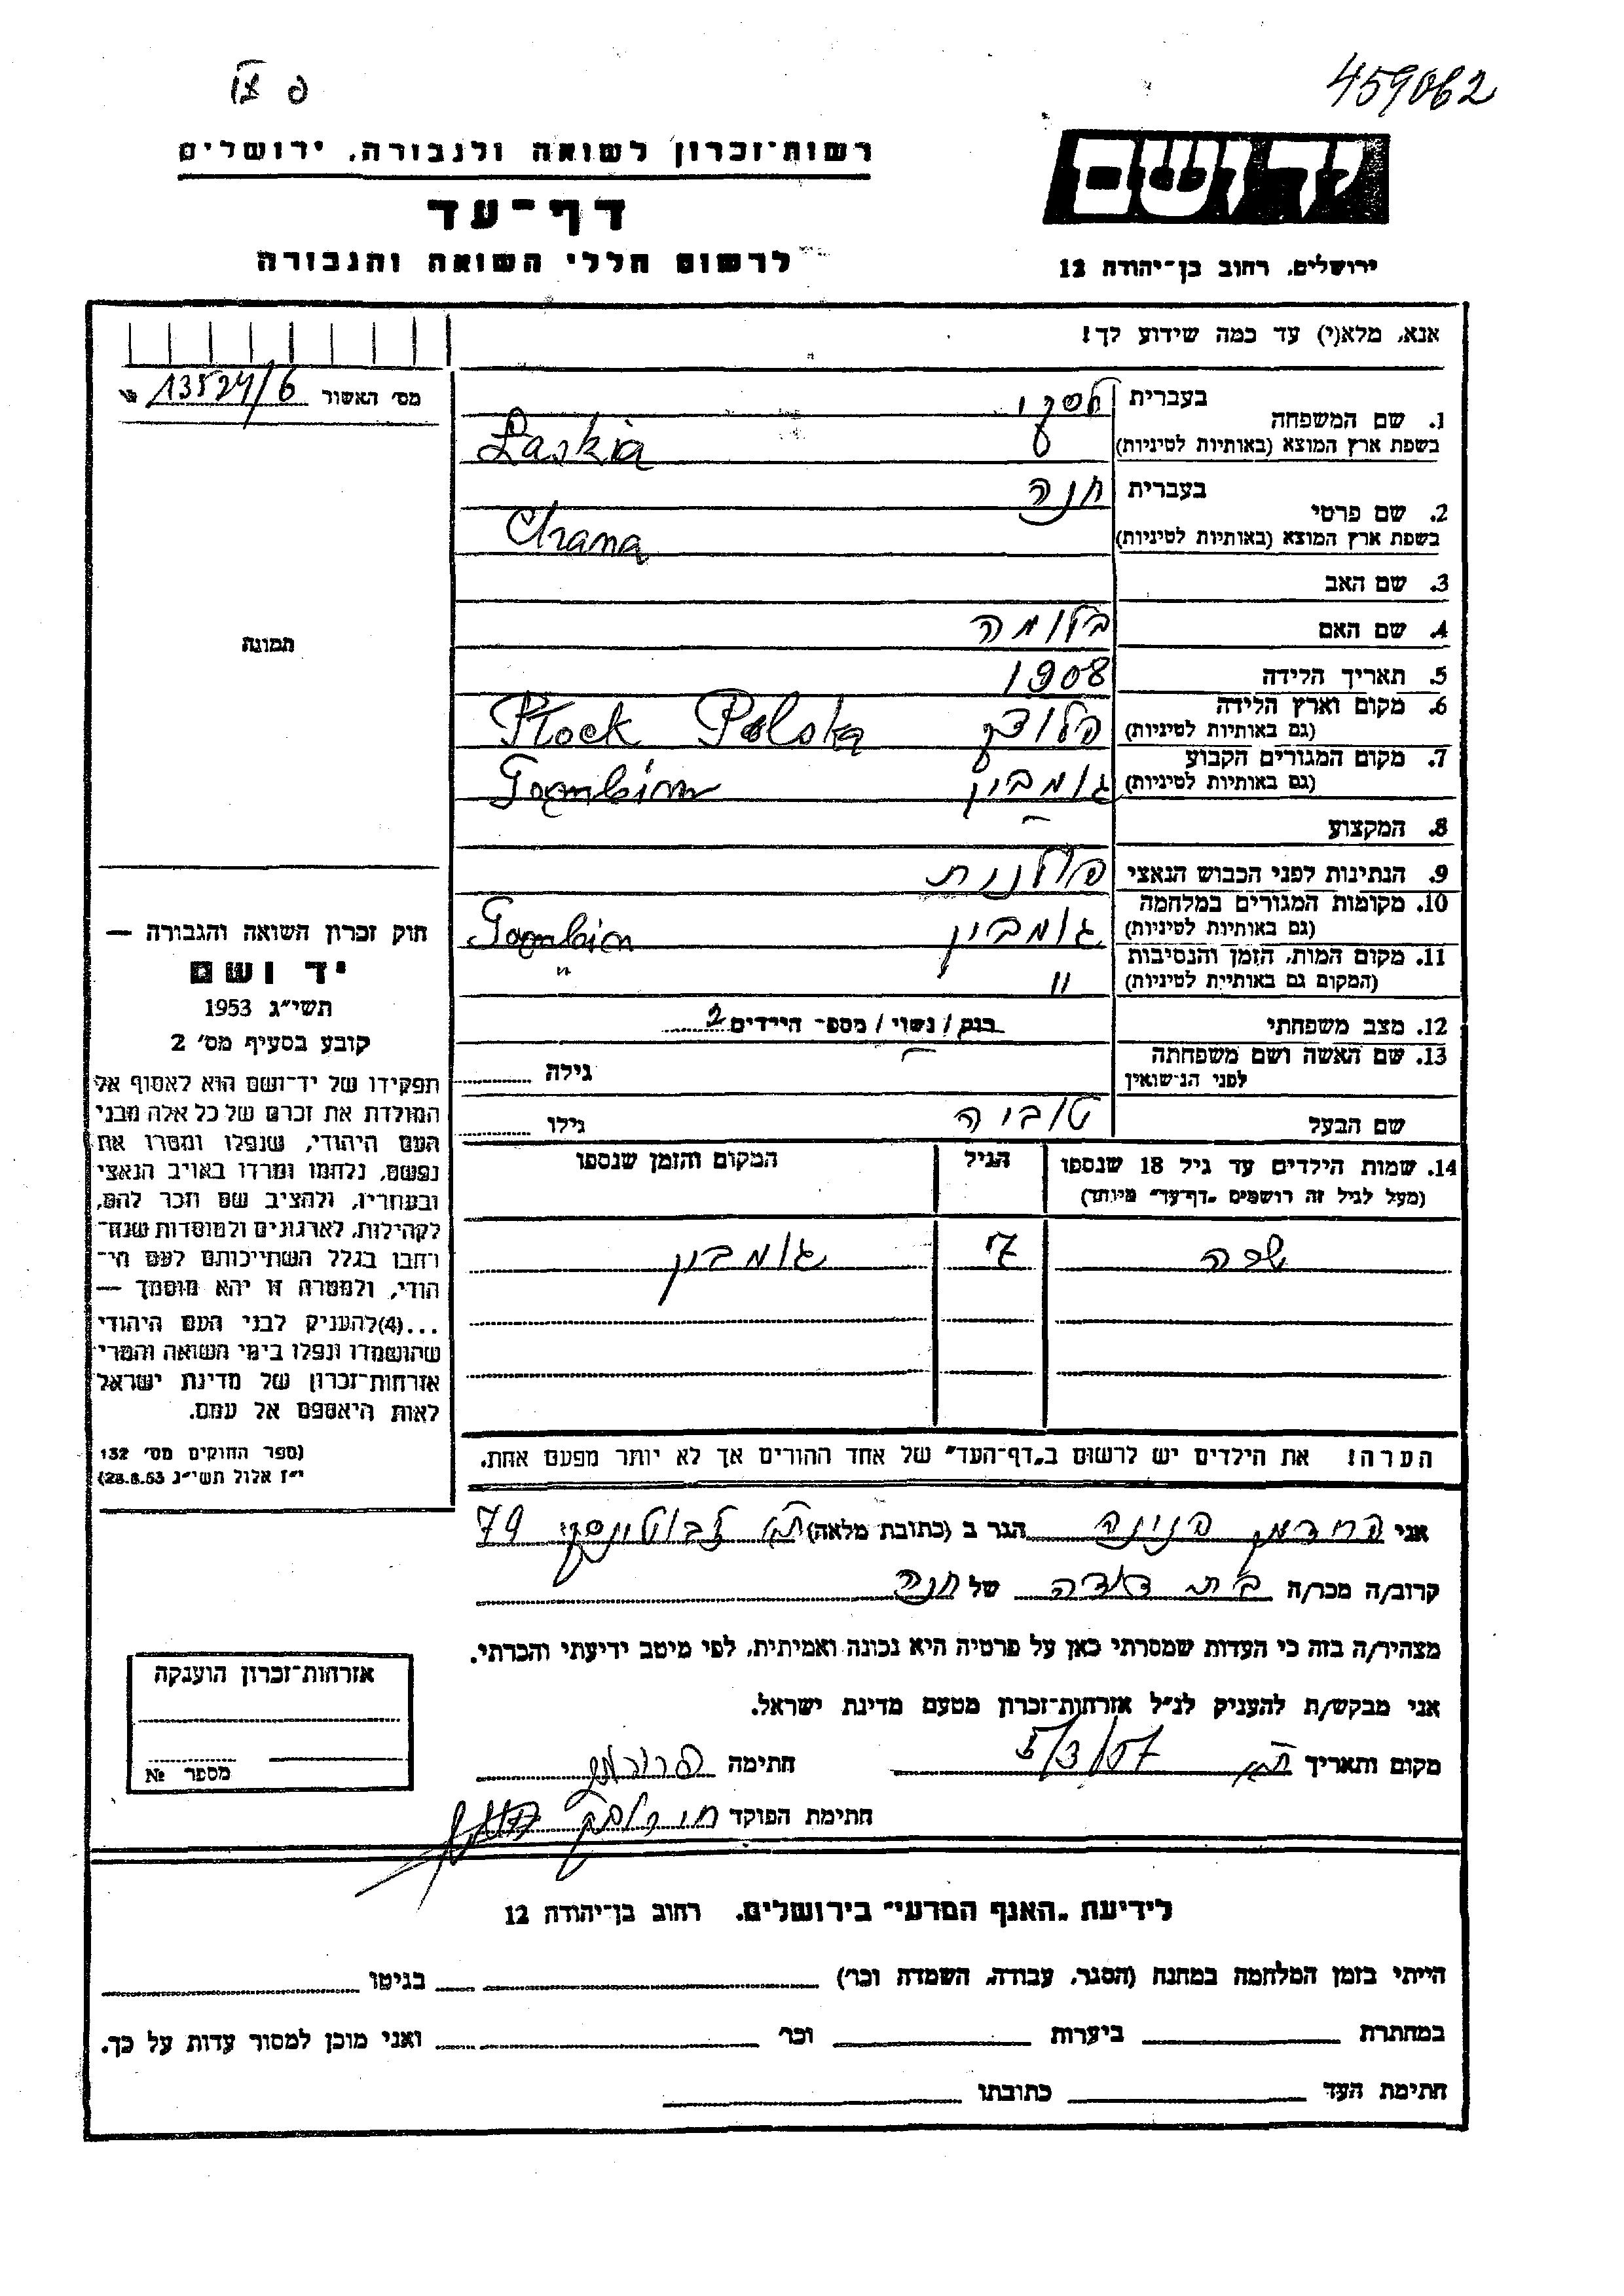 פ
459062
ידושם
רשות־זכרון לשואה ולגבורה, ירושלים
דף־עד
לרשום חללי השואה והגבורה
ירושלים, רחוב בן־יהודה 12
אנא, מלא(י) עד כמה שידוע לך!
מס׳ האשור 13524/6
1. שם המשפחה בעברית לסקי
בשפת ארץ המוצא (באותיות לטיניות) Łaskia
2. שם פרטי בעברית חנה
בשפת ארץ המוצא (באותיות לטיניות) Chana
3. שם האב
4. שם האם בלומה
5. תאריך הלידה 1908
6. מקום וארץ הלידה (גם באותיות לטיניות) פלוצק Płock Polska
7. מקום המגורים הקבוע (גם באותיות לטיניות) גומבין Gombin
8. המקצוע —
9. הנתינות לפני הכבוש הנאצי פולנית
10. מקומות המגורים במלחמה (גם באותיות לטיניות) גומבין Gombin
11. מקום המות, הזמן והנסיבות (המקום גם באותיות לטיניות) " "
12. מצב משפחתי רווק / נשוי / מספר הילדים 2
13. שם האשה ושם משפחתה לפני הנישואין — גילה
שם הבעל טוביה גילו
14. שמות הילדים עד גיל 18 שנספו
(מעל לגיל זה רושמים „דף־עד" מיוחד)
הגיל
המקום והזמן שנספו
שרה 7 גומבין
הערה! את הילדים יש לרשום ב„דף־העד" של אחד ההורים אך לא יותר מפעם אחת.
תמונה
חוק זכרון השואה והגבורה —
יד ושם
תשי״ג 1953
קובע בסעיף מס׳ 2
תפקידו של יד־ושם הוא לאסוף אל
המולדת את זכרם של כל אלה מבני
העם היהודי, שנפלו ומסרו את
נפשם, נלחמו ומרדו באויב הנאצי
ובעוזריו, ולהציב שם וזכר להם,
לקהילות, לארגונים ולמוסדות שנח־
רחבו בגלל השתייכותם לעם הי־
הודי, ולמטרה זו יהא מוסמך —
...(4)להעניק לבני העם היהודי
שהושמדו ונפלו בימי השואה והמרי
אזרחות־זכרון של מדינת ישראל
לאות היאספם אל עמם.
(ספר החוקים מס׳ 132
י״ז אלול תשי״ג 28.8.53)
אני פרידמן פנינה הגר ב (כתובת מלאה) ת״א ז׳בוטינסקי 79
קרוב/ה מכר/ה בת דודה של חנה
מצהיר/ה בזה כי העדות שמסרתי כאן על פרטיה היא נכונה ואמיתית, לפי מיטב ידיעתי והכרתי.
אני מבקש/ת להעניק לנ״ל אזרחות־זכרון מטעם מדינת ישראל.
מקום ותאריך ת״א 5/3/57 חתימה פרידמן
חתימת הפוקד
אזרחות־זכרון הוענקה
מספר №
לידיעת „האגף המדעי" בירושלים, רחוב בן־יהודה 12
הייתי בזמן המלחמה במחנה (הסגר, עבודה, השמדה וכו׳) בגיטו
במחתרת ביערות וכו׳ ואני מוכן למסור עדות על כך.
חתימת העד כתובתו